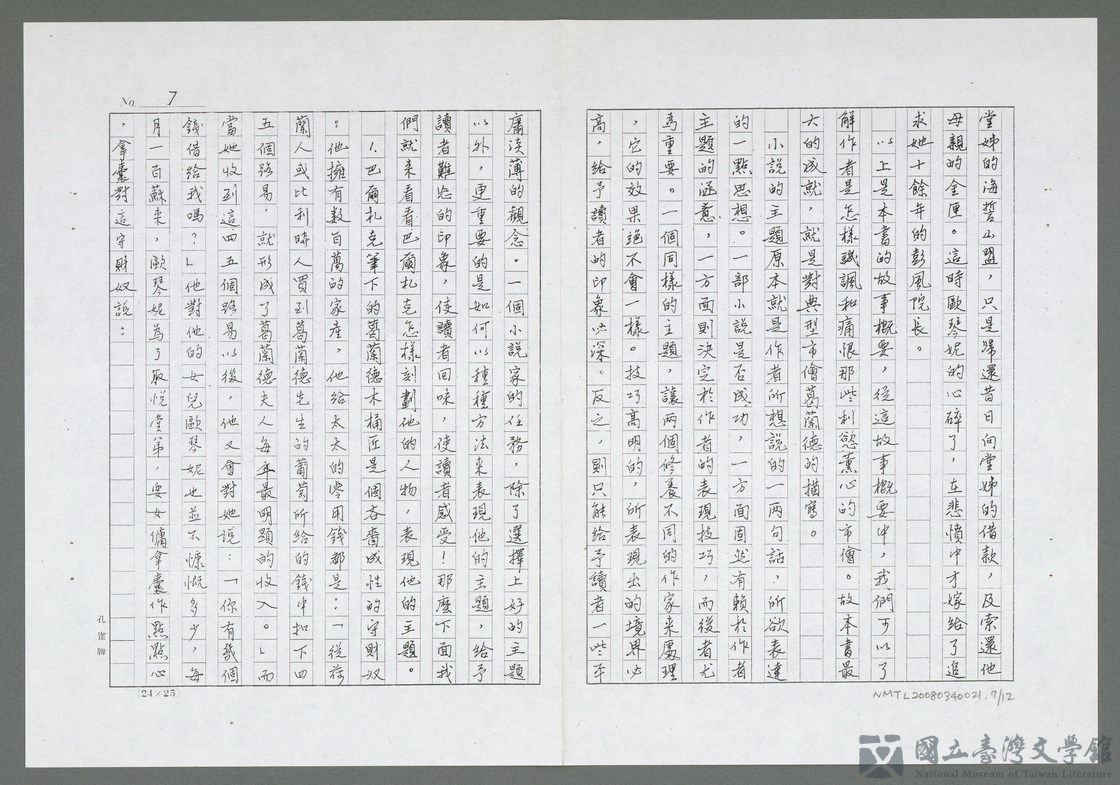 堂姊的海誓山盟，只是歸還昔日向堂姊的借款，及索還他
母親的金匣。這時歐琴妮的心碎了，在悲憤中才嫁給了追
求她十餘年的彭風院長。
以上是本書的故事概要，從這故事概要中，我們可以了
解作者是怎樣譏諷和痛恨那些利慾薰心的市儈。故本書最
大的成就，就是對典型市儈葛蘭德的描寫。
小說的主題原本就是作者所想說的一兩句話，所欲表達
的一點思想。一部小說是否成功，一方面固然有賴於作者
主題的涵意，一方面則決定於作者的表現技巧，而後者尤
為重要。一個同樣的主題，讓兩個修養不同的作家來處理
，它的效果絕不會一樣。技巧高明的，所表現出的境界必
高，給予讀者的印象必深。反之，則只能給予讀者一些平
庸淡薄的觀念。一個小說家的任務，除了選擇上好的主題
以外，更重要的是如何以種種方法來表現他的主題，給予
讀者難忘的印象，使讀者回味，使讀者感受！那麼下面我
們就來看看巴爾札克怎樣刻劃他的人物，表現他的主題。
1.巴爾札克筆下的葛蘭德木桶匠是個吝嗇成性的守財奴
：他擁有數百萬的家產，他給太太的零用錢都是：「從荷
蘭人或比利時人買到葛蘭德先生的葡萄所給的錢中扣下四
五個路易，就形成了葛蘭德夫人每年最明顯的收入。」而
當她收到這四五個路易以後，他又會對她說：「你有幾個
錢借給我嗎？」他對他的女兒歐琴妮也並不慷慨多少，每
月一百蘇來，歐琴妮為了取悅堂弟，要女傭拿囊作點點心
，拿囊對這守財奴說：
No. 7
(24×25)
孔雀牌
NMTL20080340021.7/12
國立臺灣文學館
National Museum of Taiwan Literature